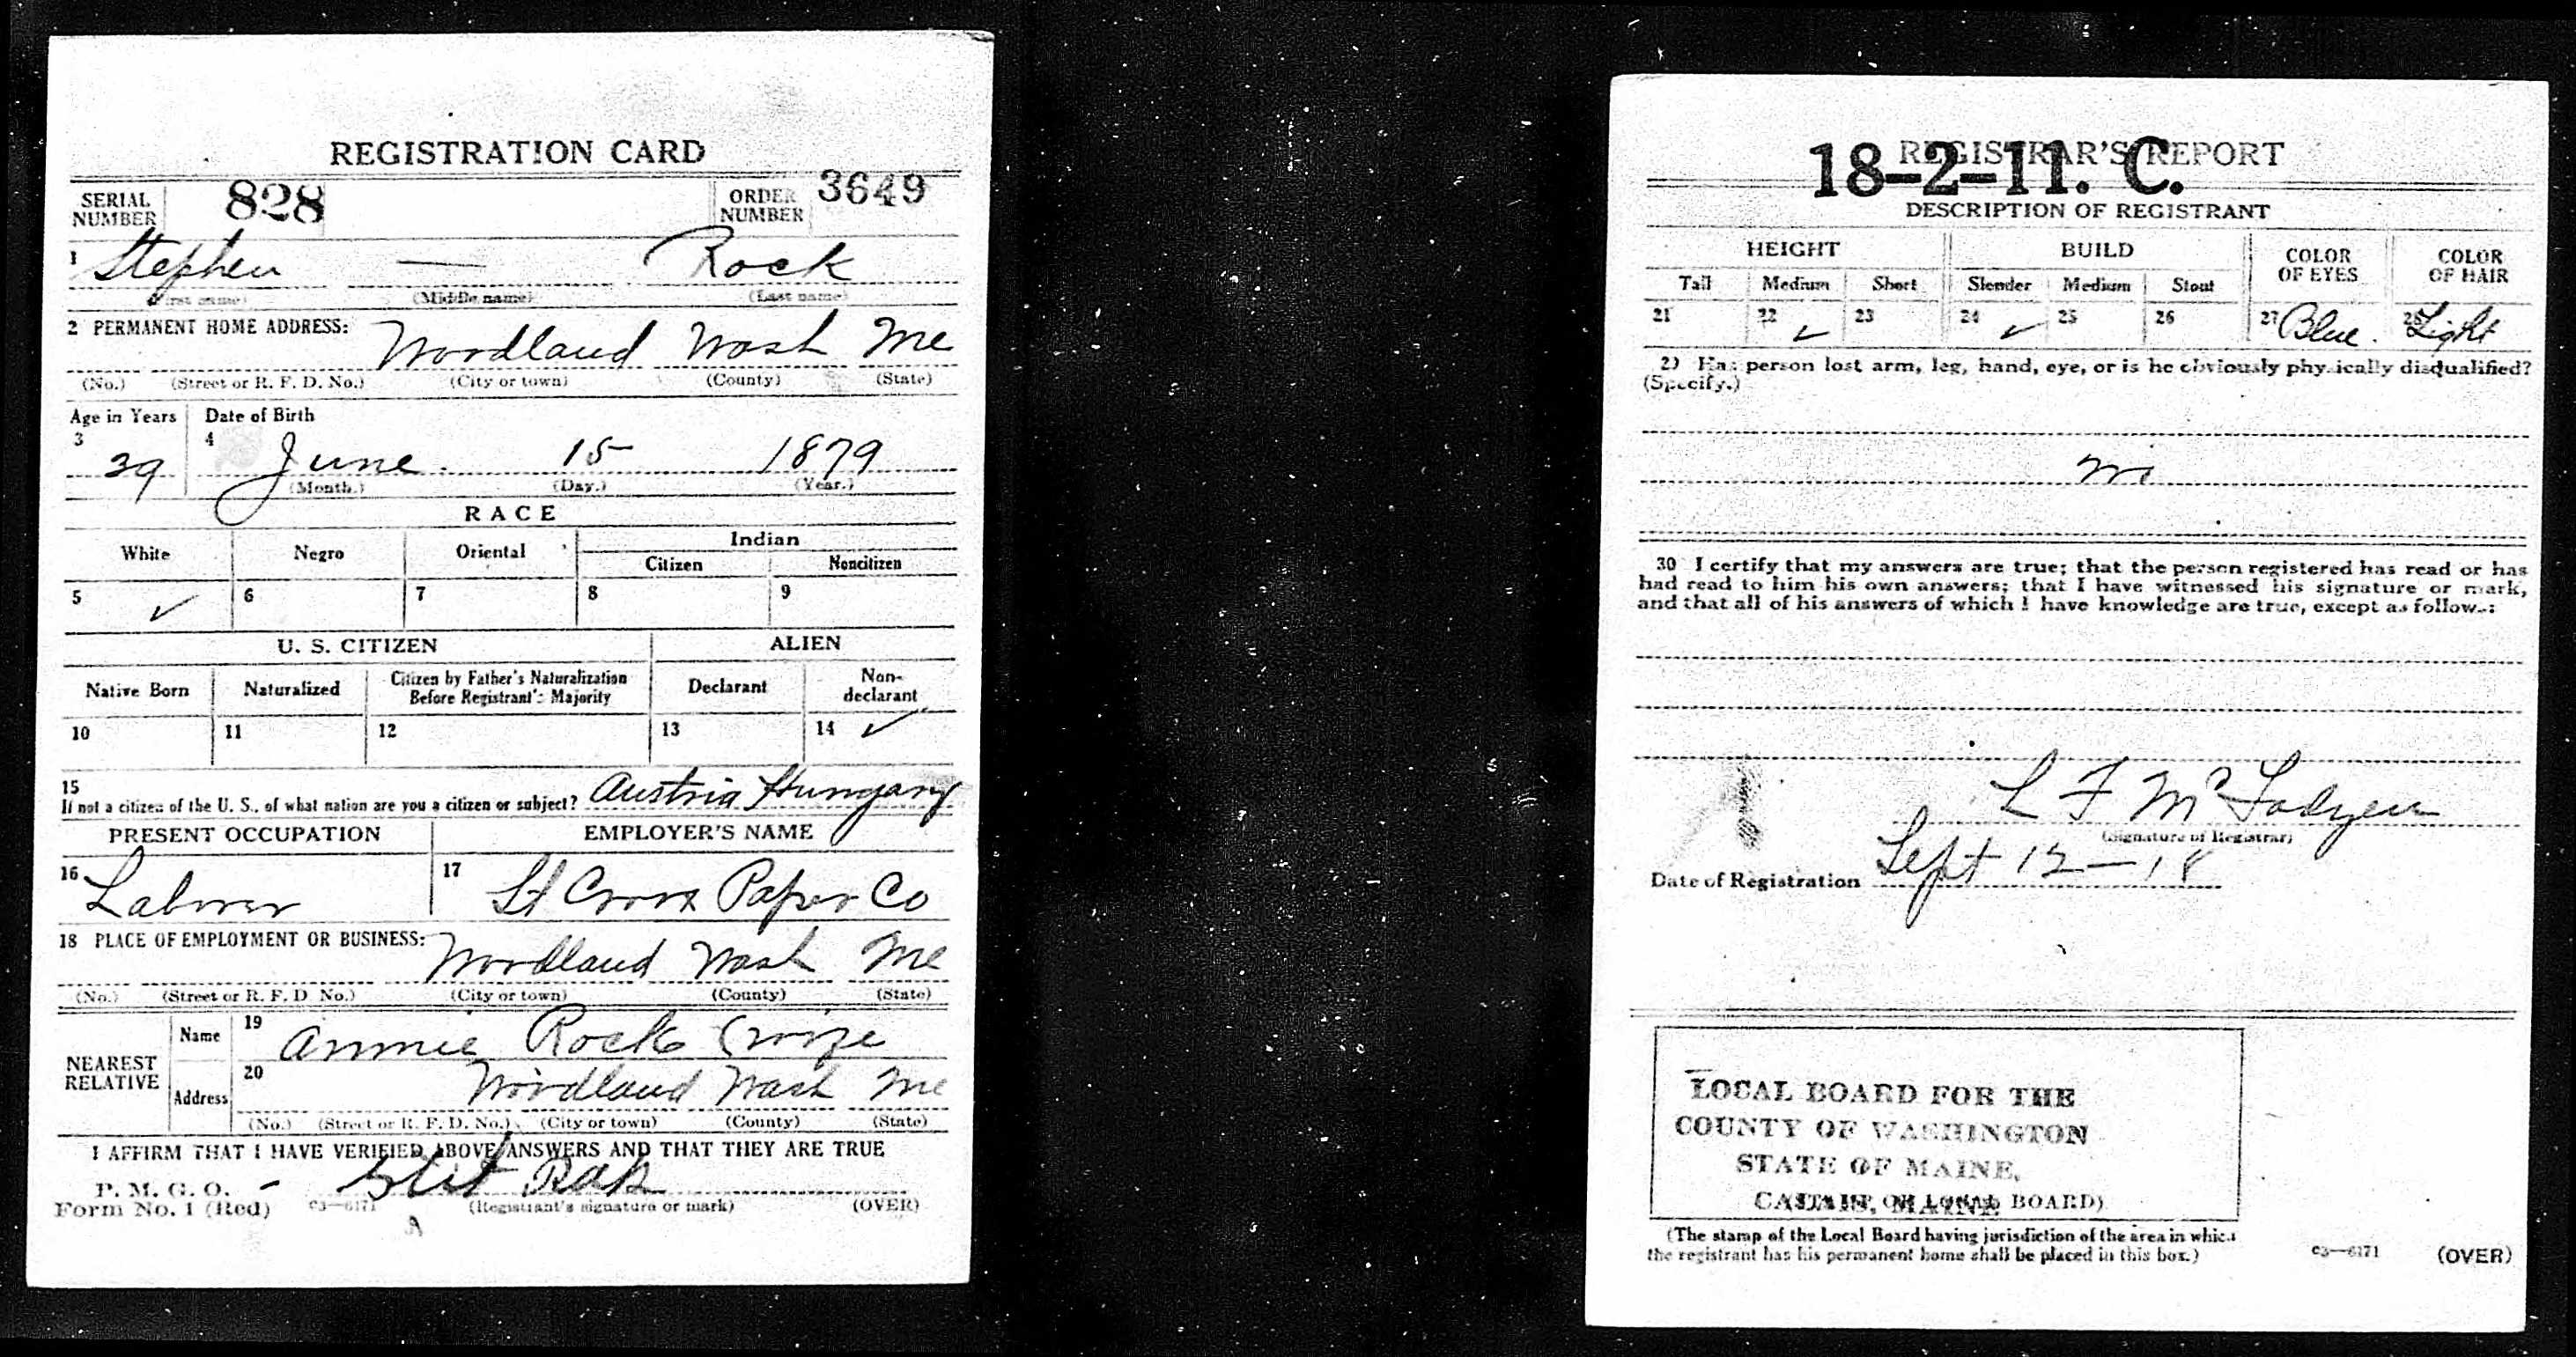 REGISTRATION CARD
SERIAL NUMBER 828 ORDER NUMBER 3649
1 Stephen — Rock
(First name) (Middle name) (Last name)
2 PERMANENT HOME ADDRESS: Woodland Wash Me
(No.) (Street or R. F. D. No.) (City or town) (County) (State)
Age in Years Date of Birth
3 39 4 June 15 1879
(Month.) (Day.) (Year.)
RACE
White Negro Oriental Indian
Citizen Noncitizen
5 ✓ 6 7 8 9
U. S. CITIZEN ALIEN
Native Born Naturalized Citizen by Father's Naturalization Before Registrant's Majority Declarant Non-declarant
10 11 12 13 14 ✓
15
If not a citizen of the U. S., of what nation are you a citizen or subject? Austria Hungary
PRESENT OCCUPATION EMPLOYER'S NAME
16 Laborer 17 St Croix Paper Co
18 PLACE OF EMPLOYMENT OR BUSINESS: Woodland Wash Me
(No.) (Street or R. F. D. No.) (City or town) (County) (State)
NEAREST RELATIVE
Name 19 Annie Rock
Address 20 Woodland Wash Me
(No.) (Street or R. F. D. No.) (City or town) (County) (State)
I AFFIRM THAT I HAVE VERIFIED ABOVE ANSWERS AND THAT THEY ARE TRUE
P. M. G. O.
Form No. 1 (Red) c3—6171 (Registrant's signature or mark) (OVER)
REGISTRAR'S REPORT
18-2-11. C.
DESCRIPTION OF REGISTRANT
HEIGHT BUILD COLOR OF EYES COLOR OF HAIR
Tall Medium Short Slender Medium Stout
21 22 ✓ 23 24 ✓ 25 26 27 Blue. 28 Light
29 Has person lost arm, leg, hand, eye, or is he obviously physically disqualified?
(Specify.)
30 I certify that my answers are true; that the person registered has read or has
had read to him his own answers; that I have witnessed his signature or mark,
and that all of his answers of which I have knowledge are true, except as follows:
L F
(Signature of Registrar)
Date of Registration Sept 12—18
LOCAL BOARD FOR THE
COUNTY OF WASHINGTON
STATE OF MAINE,
CALAIS, MAINE
(STAMP OF LOCAL BOARD)
(The stamp of the Local Board having jurisdiction of the area in which
the registrant has his permanent home shall be placed in this box.)
c3—6171 (OVER)